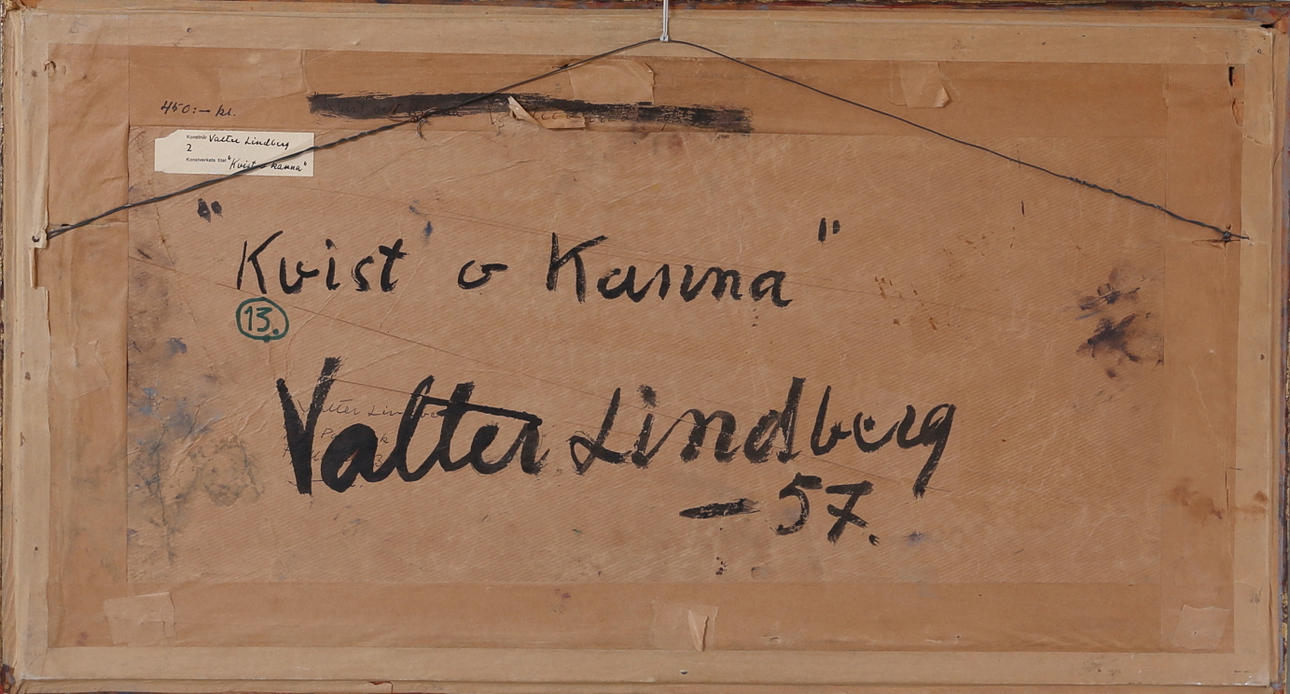 450:- kr.
Konstnär Valter Lindberg
2
Konstverkets titel "Kvist o kanna"
"Kvist o Kanna"
13.
Valter Lindberg
-57.